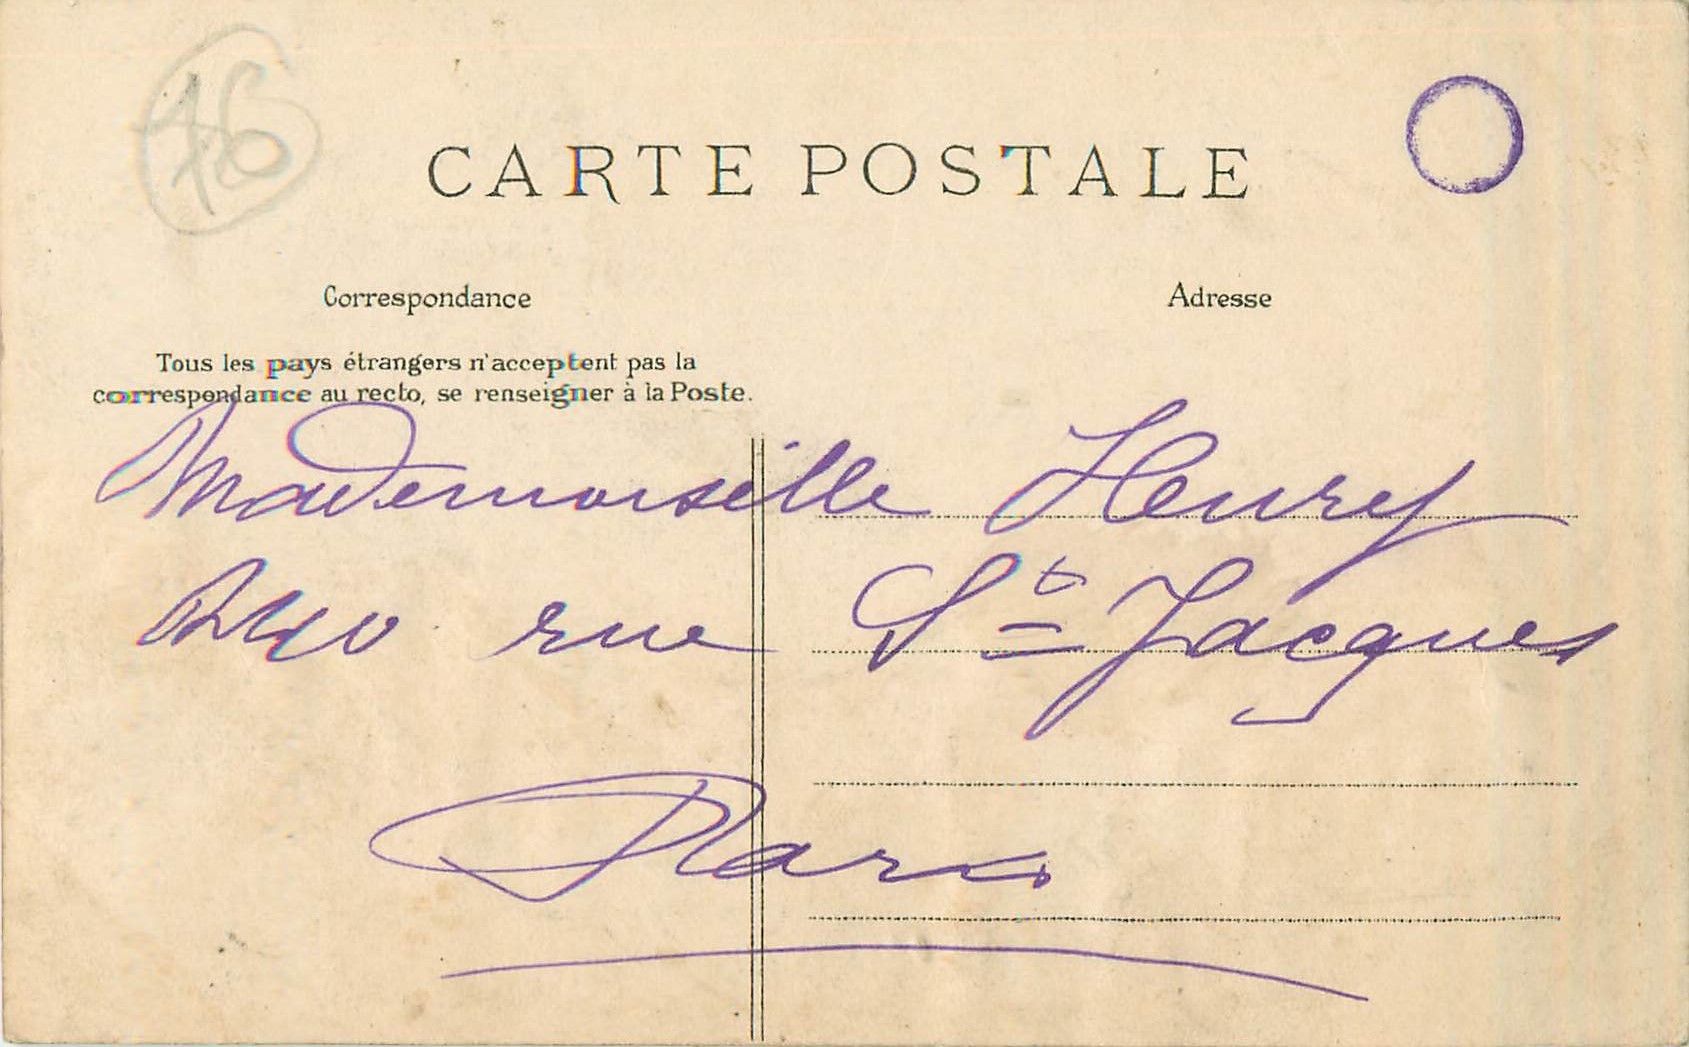 76
CARTE POSTALE
Correspondance
Adresse
Tous les pays étrangers n'acceptent pas la
correspondance au recto, se renseigner à la Poste.
Mademoiselle Henry
rue St Jacques
Paris